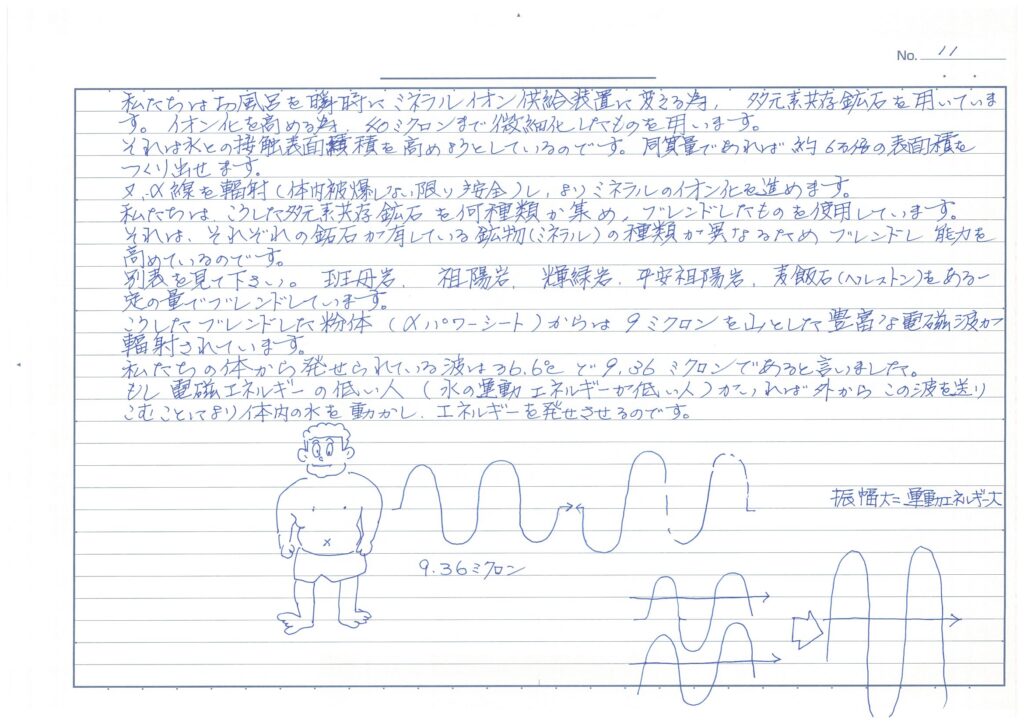 No. 11
私たちはお風呂を瞬時にミネラルイオン供給装置に変える為、多元素共存鉱石を用いていま
す。イオン化を高める為、40ミクロンまで微細化したものを用います。
それは水との接触表面積を高めようとしているのです。同質量であれば約6万倍の表面積を
つくり出せます。
又、α線を輻射(体内被爆しない限り安全)し、よりミネラルのイオン化を進めます。
私たちは、こうした多元素共存鉱石を何種類か集め、ブレンドしたものを使用しています。
それは、それぞれの鉱石が有している鉱物(ミネラル)の種類が異なるためブレンドし能力を
高めているのです。
別表を見て下さい。班母岩、祖陽岩、輝緑岩、平安祖陽岩、麦飯石(ヘルストン)をある一
定の量でブレンドしています。
こうしたブレンドした粉体(αパワーシート)からは9ミクロンを山とした豊富な電磁波が
輻射されています。
私たちの体から発せられている波は36.6℃で9.36ミクロンであると言いました。
もし電磁エネルギーの低い人(水の運動エネルギーが低い人)がいれば外からこの波を送り
こむことにより体内の水を動かし、エネルギーを発せさせるのです。
振幅大=運動エネルギー大
9.36ミクロン